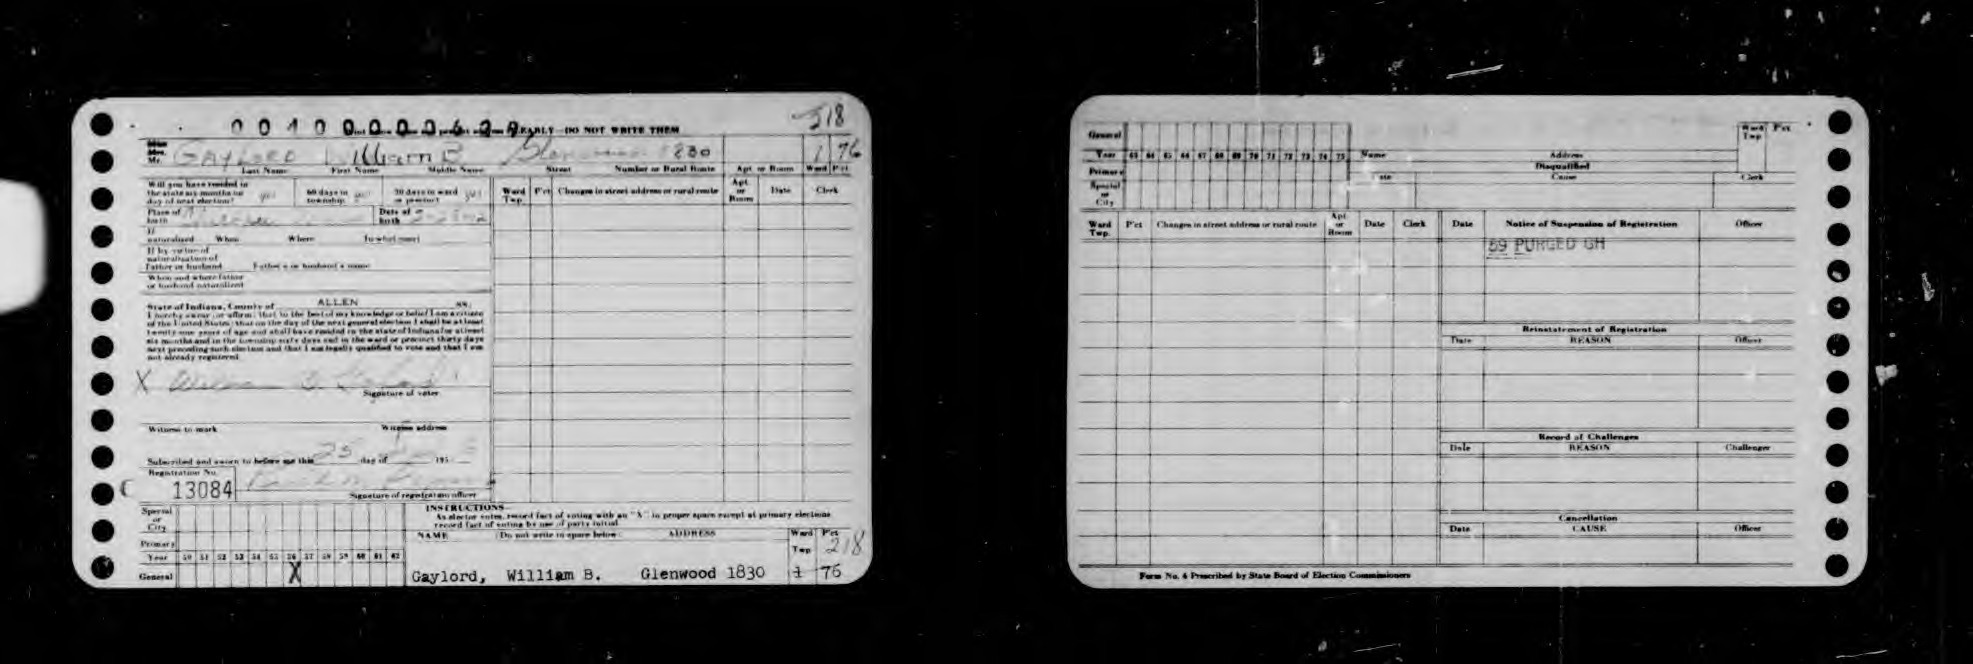 218
PLEASE DO NOT WRITE THEM
Mr. GAYLORD William B. 1830 1 76
Last Name First Name Middle Name Street Number or Rural Route Apt. or Room Ward Pct
Will you have resided in the state six months on day of next election? yes 60 days in township yes 30 days in ward or precinct yes
Ward Twp. P'ct Changes in street address or rural route Apt. or Room Date Clerk
Place of birth Date of birth
If naturalized When Where To what court
If by virtue of naturalization of Father or husband Father's or husband's name
When and where father or husband naturalized
State of Indiana, County of ALLEN ss:
I hereby swear (or affirm) that to the best of my knowledge or belief I am a citizen
of the United States; that on the day of the next general election I shall be at least
twenty-one years of age and shall have resided in the state of Indiana for at least
six months and in the township sixty days and in the ward or precinct thirty days
next preceding such election and that I am legally qualified to vote and that I am
not already registered.
X
Signature of voter
Witness to mark Witness address
Subscribed and sworn to before me this 25 day of 195
Registration No.
13084
Signature of registration officer
Special or City
Primary
Year 50 51 52 53 54 55 56 57 58 59 60 61 62
General X
INSTRUCTIONS
As elector votes, record fact of voting with an "X" in proper space except at primary elections
record fact of voting by use of party initial
NAME (Do not write in space below) ADDRESS Ward Twp P'ct
218
Gaylord, William B. Glenwood 1830 1 76
General
Year 63 64 65 66 67 68 69 70 71 72 73 74 75 Name Address Ward Twp P'ct
Primary
Special or City
Disqualified
Date Cause Clerk
Ward Twp. P'ct Changes in street address or rural route Apt. or Room Date Clerk
Date Notice of Suspension of Registration Officer
59 PURGED GH
Reinstatement of Registration
Date REASON Officer
Record of Challenges
Date REASON Challenger
Cancellation
Date CAUSE Officer
Form No. 4 Prescribed by State Board of Election Commissioners